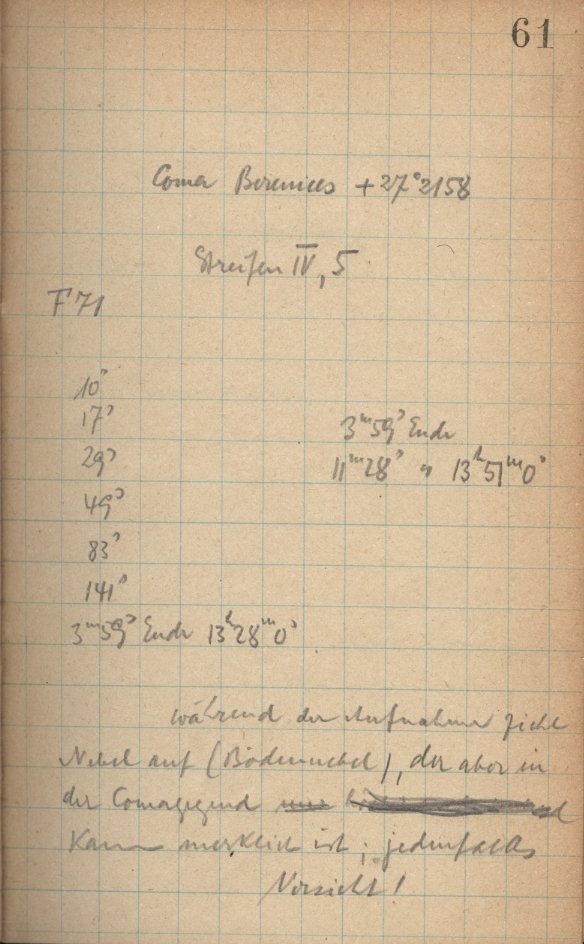 61
Coma Berenices +27°2158
Streifen IV, 5
F 71
10ˢ
17ˢ
29ˢ
49ˢ
83ˢ
141ˢ
3ᵐ59ˢ Ende 13ʰ28ᵐ0ˢ
3ᵐ59ˢ Ende
11ᵐ28ˢ " 13ʰ51ᵐ0ˢ
während der Aufnahme zieht
Nebel auf (Bodennebel), der aber in
der Comagegend
kaum merklich ist; jedenfalls
Vorsicht!